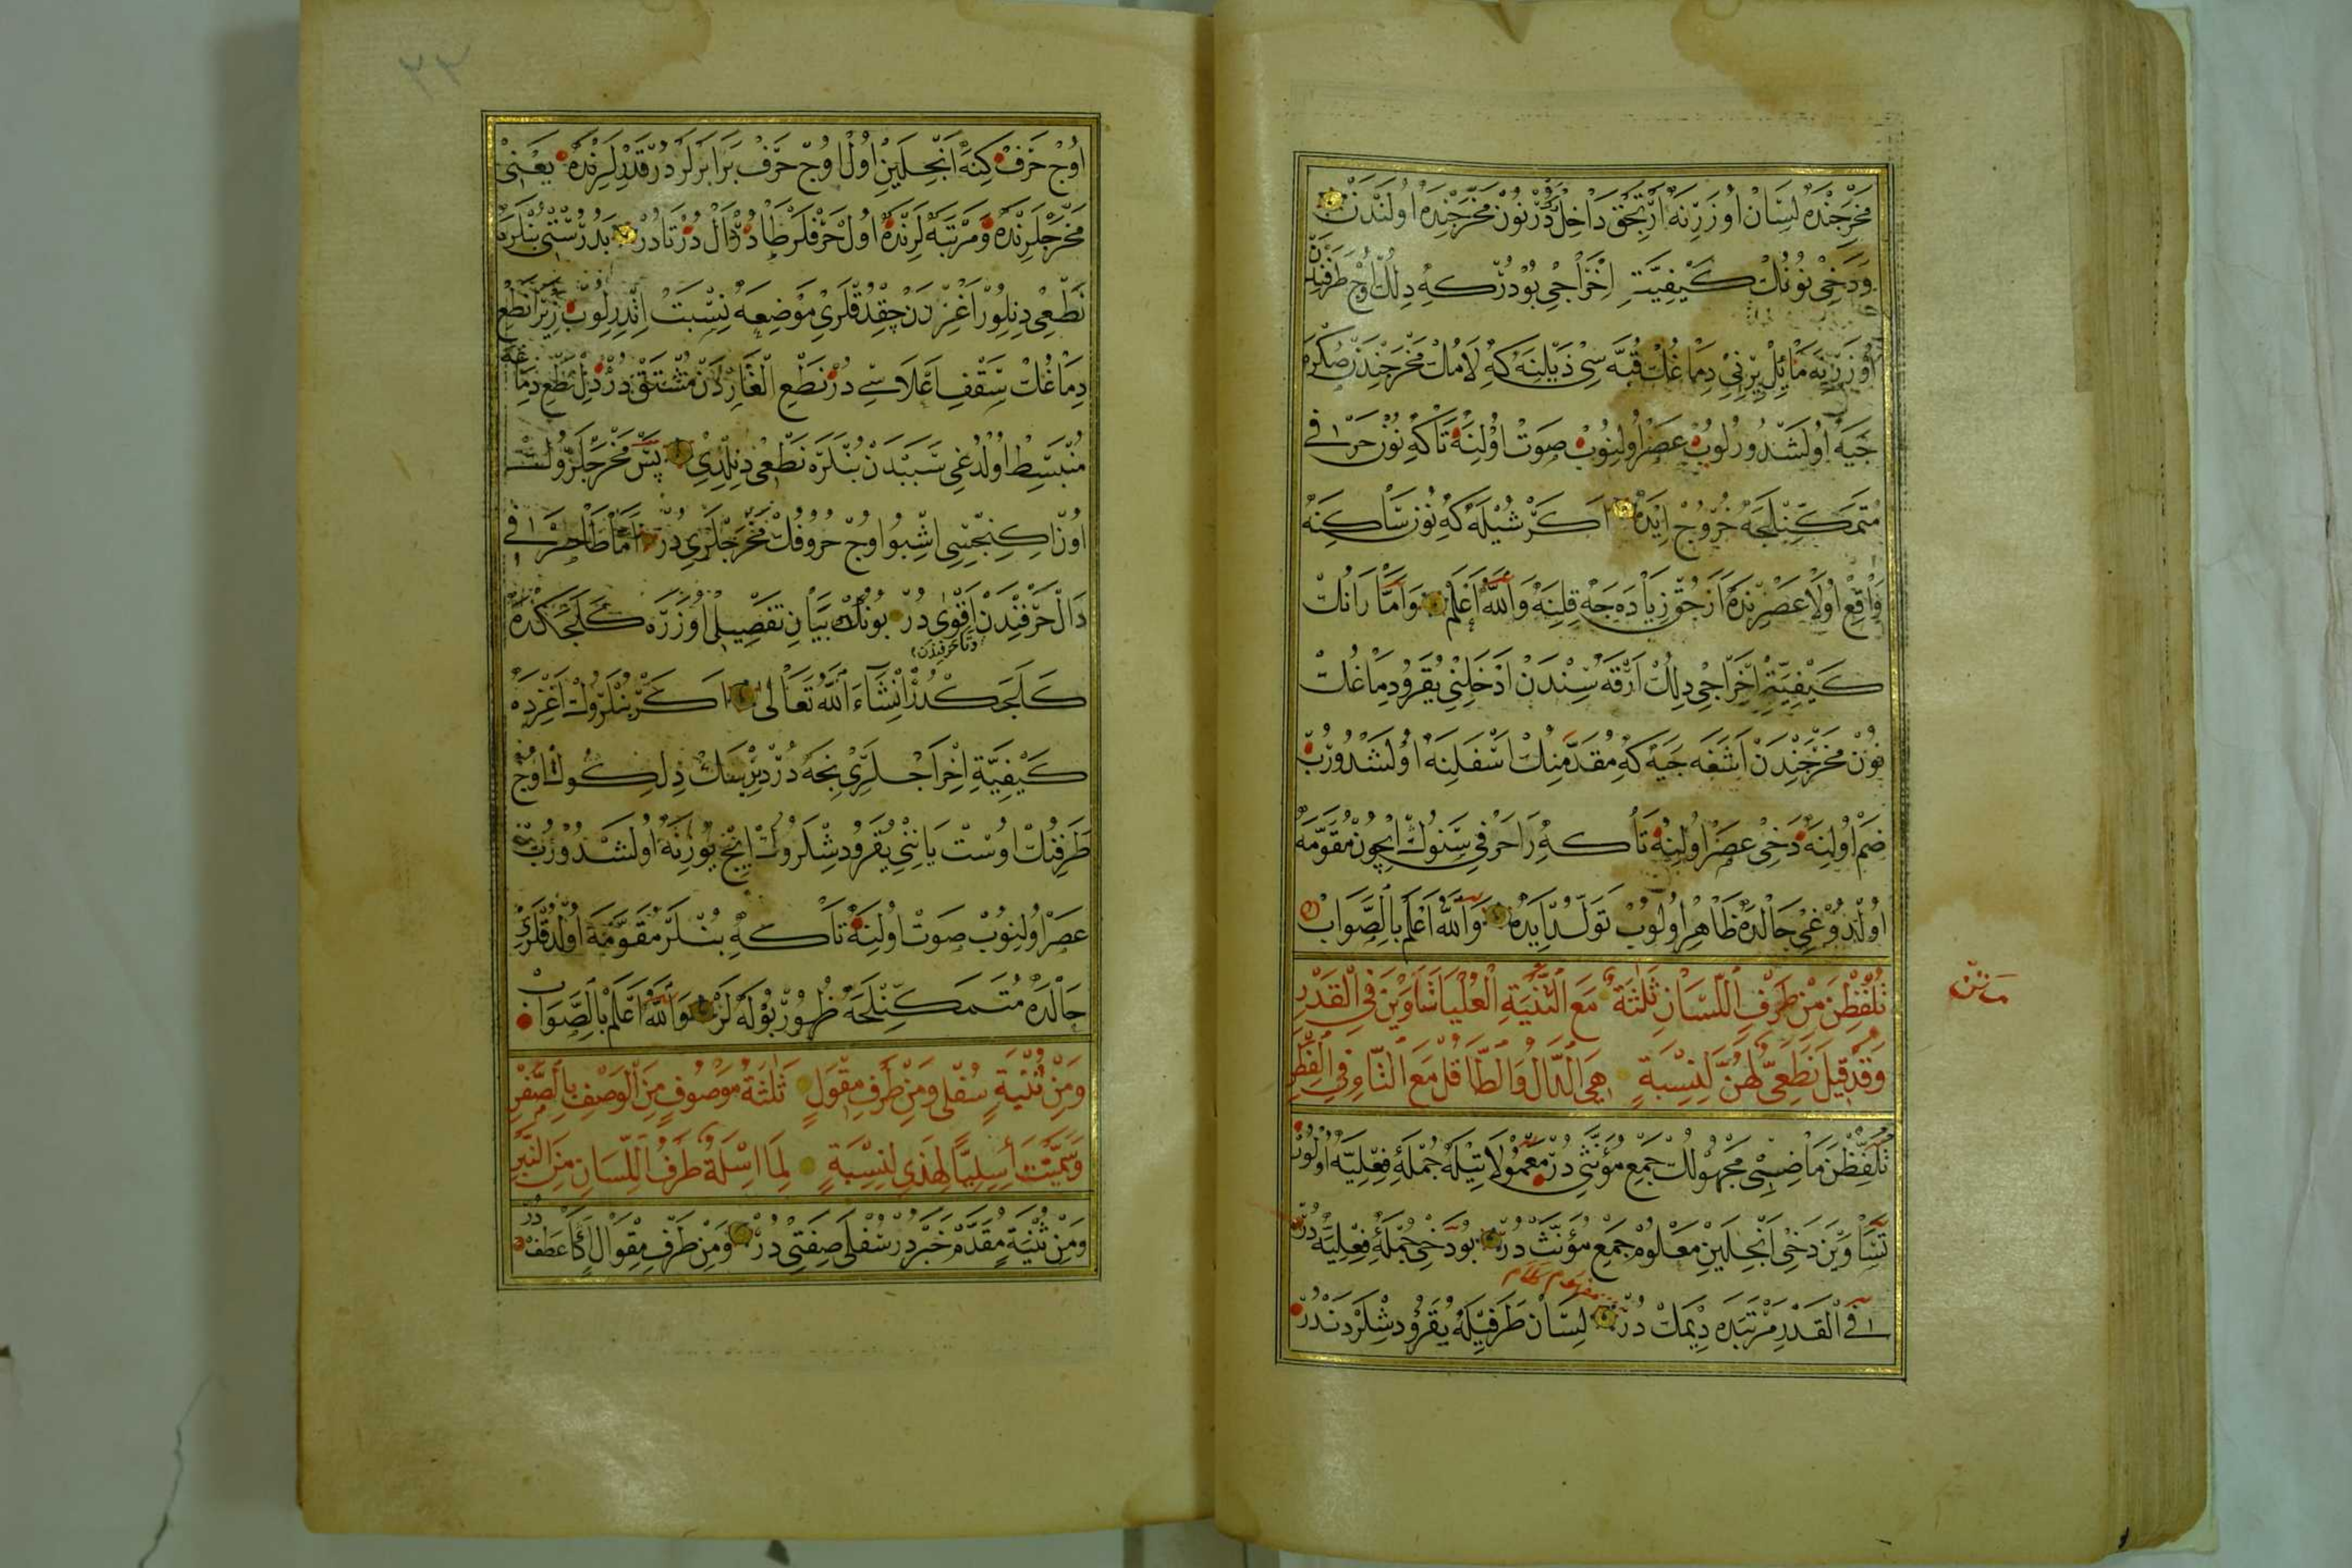 مَخْرَجِنْدَه لِسَانْ اُوزَرِنَه اَرْتِجَقْ دَاخِلْدُرْ نُونْ مَخْرَجِنْدَه اُولَنْدَنْ
وَدَخِي نُونُكْ كَيْفِيَّتِ اِخْرَاجِي بُودُرْكِه دِلُكْ اُوجْ طَرَفِنْلِه
اُوزَرِنَه مَائِلْ يِرِنِي دِمَاغُكْ قُبَّه سِي ذَيْلِنَه كِه لَامُكْ مَخْرَجِنْدَنْ صُكْرَه
جَيَه اُولَشْدُورُلُوبْ عَصْرْ اُولِنُوبْ صَوْتْ اُولِنَه تَاكِه نُونْ حَرْفِي
مُتَمَكِّنْلِجَه خُرُوجْ اِيدَه اَكَرْ شُيْلَه كِه نُونْ سَاكِنَه
وَاقِعْ اُولَا عَصْرِنْدَه اَزْجِقْ زِيَادَه جَه قِلِنَه وَاللّٰهُ اَعْلَمْ وَاَمَّا رَانُكْ
كَيْفِيَّةِ اِخْرَاجِي دِلُكْ اَرْقَه سِنْدَنْ اَدْخَلِنِي يُقَرُو دِمَاغُكْ
نُونْ مَخْرَجِنْدَنْ اَشَغَه جَيَه كِه مُقَدَّمِنُكْ اَسْفَلِنَه اُولَشْدُورُبْ
ضَمْ اُولِنَه دَخِي عَصْرْ اُولِنَه تَا كِه رَا حَرْفِي سِنُوكْ اِيچُونْ مُقَوَّمَه
اُولْدُوغِي حَالْدَه ظَاهِرْ اُولُوبْ تَوَلُّدْ اِيدَه وَاللّٰهُ اَعْلَمْ بِالصَّوَابْ
تُلُفِّظْنَ مِنْ طَرَفِ اللِّسَانِ ثَلٰثَةٌ مَعَ الثَّنِيَّةِ الْعُلْيَا تَسَاوَيْنَ فِي الْقَدْرِ
وَقَدْ قِيلَ نَطْعِيٌّ لَهُنَّ لِنِسْبَةٍ هِيَ الدَّالُ وَالطَّا قُلْ مَعَ التَّاءِ فِي الْفِطْرِ
متن
تُلُفِّظْنَ مَاضِئِ مَجْهُولُكْ جَمْعِ مُؤَنَّثِي دُرْ مَعْمُولَاتِيلَه جُمْلَۀِ فِعْلِيَّه اُولُورْ
تَسَاوَيْنَ دَخِي اَنْجِلَيِنْ مَعْلُومْ جَمْعِ مُؤَنَّثْ دُرْ بُو دَخِي جُمْلَۀِ فِعْلِيَّه دُرْ
فِي الْقَدْرِ مَرْتَبَه دِيمَكْ دُرْ لِسَانْ طَرَفِيلَه يُقَرُو دِشْلَرْدَنْدُرْ
٣٣
اُوجْ حَرْفْ كِنَه اَنْجِلَيِنْ اُولْ اُوجْ حَرْفْ بَرَابَرْلَرْدُرْ قَدْرْلَرِنْدَه يَعْنِي
مَخْرَجْلَرِنْدَه وَمَرْتَبَه لَرِنْدَه اُولْ حَرْفْلَرْ طَادُرْ دَالْدُرْ تَادُرْ بَدُرُسْتِي بُنْلَرَه
نَطْعِي دِنِلُورْ اَغِزْدَنْ چِقْدُقْلَرِي مَوْضِعَه نِسْبَتْ اِتْدِرِلُوبْ زِيرَا نَطْعْ
دِمَاغُكْ سَقْفِ اَعْلَاسِي دُرْ نَطْعِ الْغَارِدَنْ مُشْتَقْ دُرْ دِلْ نَطْعِ دِمَاغَه
مُنْبَسِطْ اُولْدُغِي سَبَبْدَنْ بُنْلَرَه نَطْعِي دِنِلْدِي پَسْ مَخْرَجْلَرُوكْ
اُونْ اِكِنْجِيسِي اِشْبُو اُوجْ حُرُوفُكْ مَخْرَجْلَرِي دُرْ اَمَّا طَا حَرْفِي
دَالْ حَرْفِنْدَنْ اَقْوٰي دُرْ بُونُكْ بَيَانِ تَفْصِيلِي اُوزَرَه كَلَجَكْدَه
وتا حرفندن
كَلَجَكْدُرْ اِنْشَاءَ اللّٰهُ تَعَالٰى اَكَرْ بُنْلَرُوكْ اَغِزْدَه
كَيْفِيَّةِ اِخْرَاجْلَرِي نِجَه دُرْ دِيرْسَكْ دِلُكْ اُوجْ
طَرَفِنُكْ اُوسْتْ يَانِنِي يُقَرُو دِشْلَرُوكْ اِيچْ يُوزِنَه اُولَشْدُورُبْ
عَصْرْ اُولِنُوبْ صَوْتْ اُولِنَه تَاكِه بُنْلَرْ مُقَوَّمَه اُولْدُقْلَرِي
حَالْدَه مُتَمَكِّنْلِجَه ظُهُورْ بُولَه لَرْ وَاللّٰهُ اَعْلَمْ بِالصَّوَابْ
وَمِنْ ثَنِيَّةٍ سُفْلٰى وَمِنْ طَرَفِ مِقْوَلٍ ثَلٰثَةُ مَوْصُوفٍ مِنَ الْوَصْفِ بِالصَّفْرِ
وَسُمِّيَتْ أَسَلِيًّا لِهٰذِي لِنِسْبَةٍ لِمَا اَسَلَةٌ طَرَفُ اللِّسَانِ مِنَ النَّبْرِ
وَمِنْ ثَنِيَّةٍ مُقَدَّمْ خَبَرْدُرْ سُفْلٰى صِفَتِي دُرْ وَمِنْ طَرَفِ مِقْوَلْ اَكَا عَطِفْدُرْ